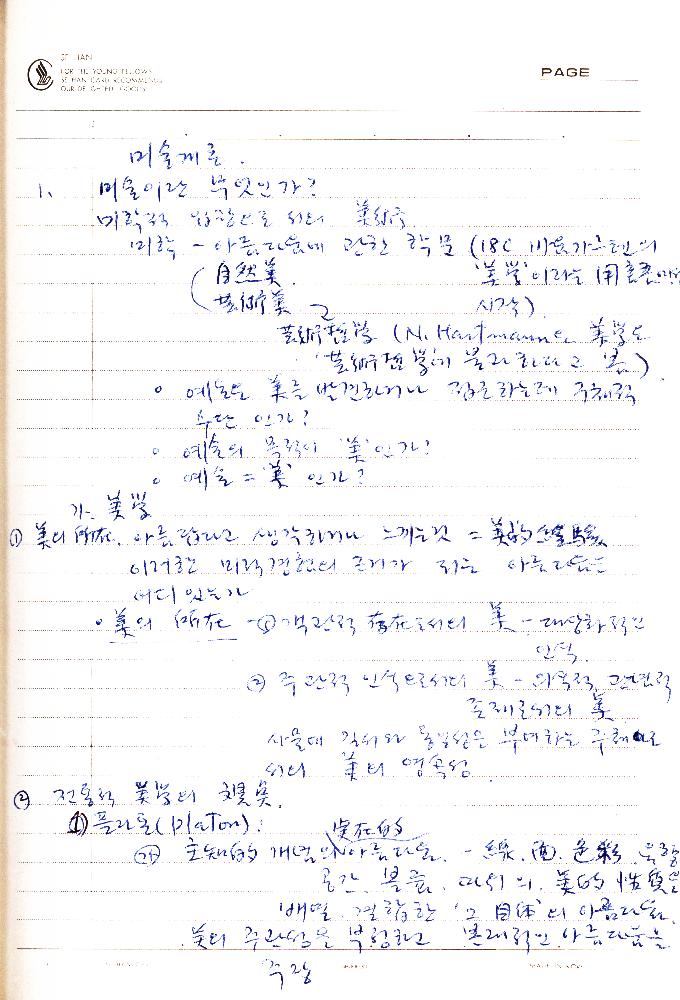 SE HAN
FOR THE YOUNG FELLOWS
SE HAN CARD RECOMMENDS
OUR DELIGHTED GOODS
PAGE
미술개론.
1. 미술이란 무엇인가?
미학적 입장으로서의 美術
미학 - 아름다움에 관한 학문 (18C 바움가르텐의
自然美 '美学'이라는 用語
芸術美 시작)
芸術哲学 (N. Hartmann은 美学을
'芸術哲学'에 불과하다고 봄)
○ 예술은 美를 발견하거나 창조하는데 주체적
수단인가?
○ 예술의 목적이 '美'인가?
○ 예술 = '美' 인가?
가. 美学
① 美의 所在. 아름답다고 생각하거나 느끼는것 = 美的 経験
이러한 미적경험의 근거가 되는 아름다움은
어디 있는가
• 美의 所在 - ① 객관적 存在로서의 美 - 대상화적인
인식
② 주관적 인식으로서의 美 - 의식적, 관념적
존재로서의 美
사물에 질서와 통일성을 부여하는 주체로
서의 美의 영속성
② 전통적 美学의
① 플라톤(Platon):
実在的
㉮ 主知的 개념의 아름다움. - 線, 面, 色彩, 음향
공간, 볼륨, 따위의 美的 性質을
배열 결합한 '그 自体'의 아름다움.
美의 주관성을 부정하고 본래적인 아름다움을
주장